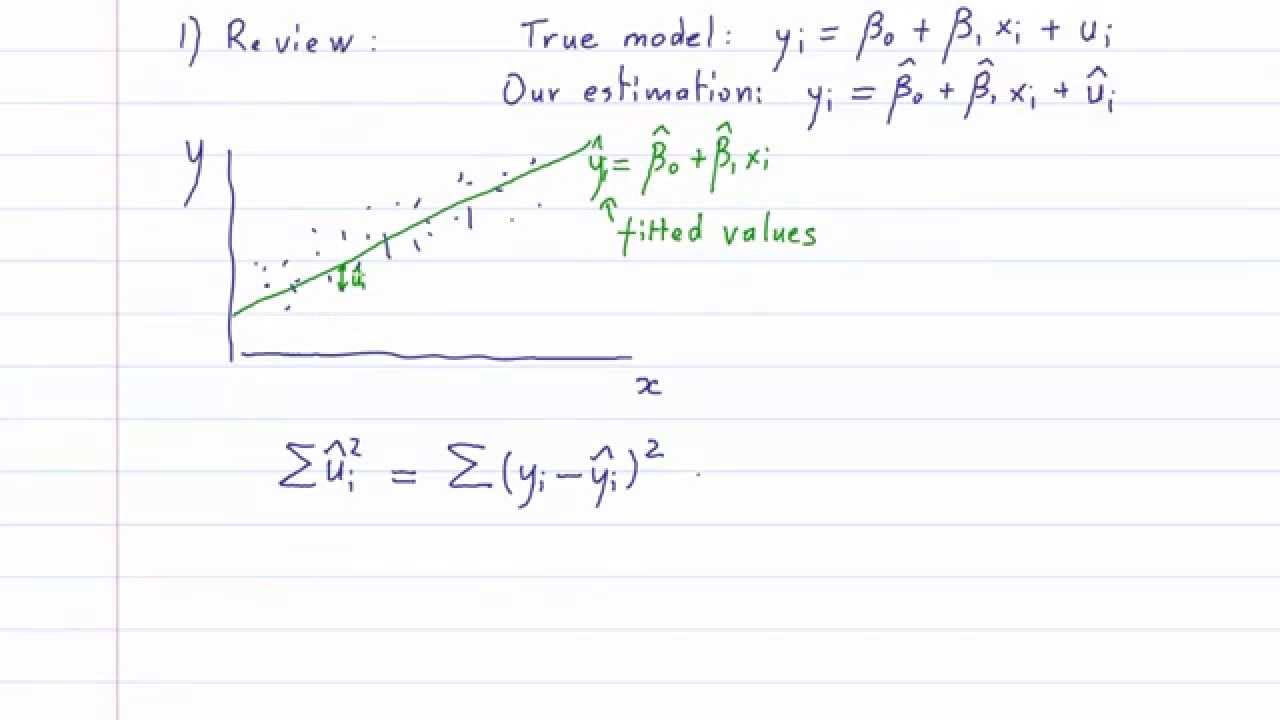 1) Review: True model: yᵢ = β₀ + β₁ xᵢ + uᵢ
Our estimation: yᵢ = β̂₀ + β̂₁ xᵢ + ûᵢ
y
ŷᵢ = β̂₀ + β̂₁ xᵢ
fitted values
û
x
∑ûᵢ² = ∑(yᵢ − ŷᵢ)²